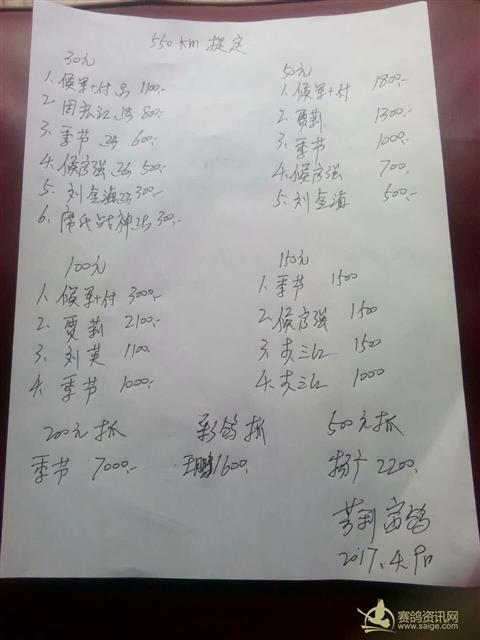 550 km 提定
30元
1. 候军+付 1100.-
2. 田苏江 800.-
3. 季节 600.-
4. 候府强 500.-
5. 刘金海 300.-
6. 席氏战神 300.-
50元
1. 候军+付 1800.-
2. 贾莉 1300.-
3. 季节 1000.-
4. 候府强 700.
5. 刘金海 500.-
100元
1. 候军+付 3000.-
2. 贾莉 2100.-
3. 刘英 1100.
4. 季节 1000.-
150元
1. 季节 1500
2. 候府强 1500
3. 三江 1500
4. 三江 1000
200元抓
季节 7000.-
彩鸽抓
1600.
500元抓
2200.
赛鸽
2017.4.9日
赛鸽资讯网
www.saige.com